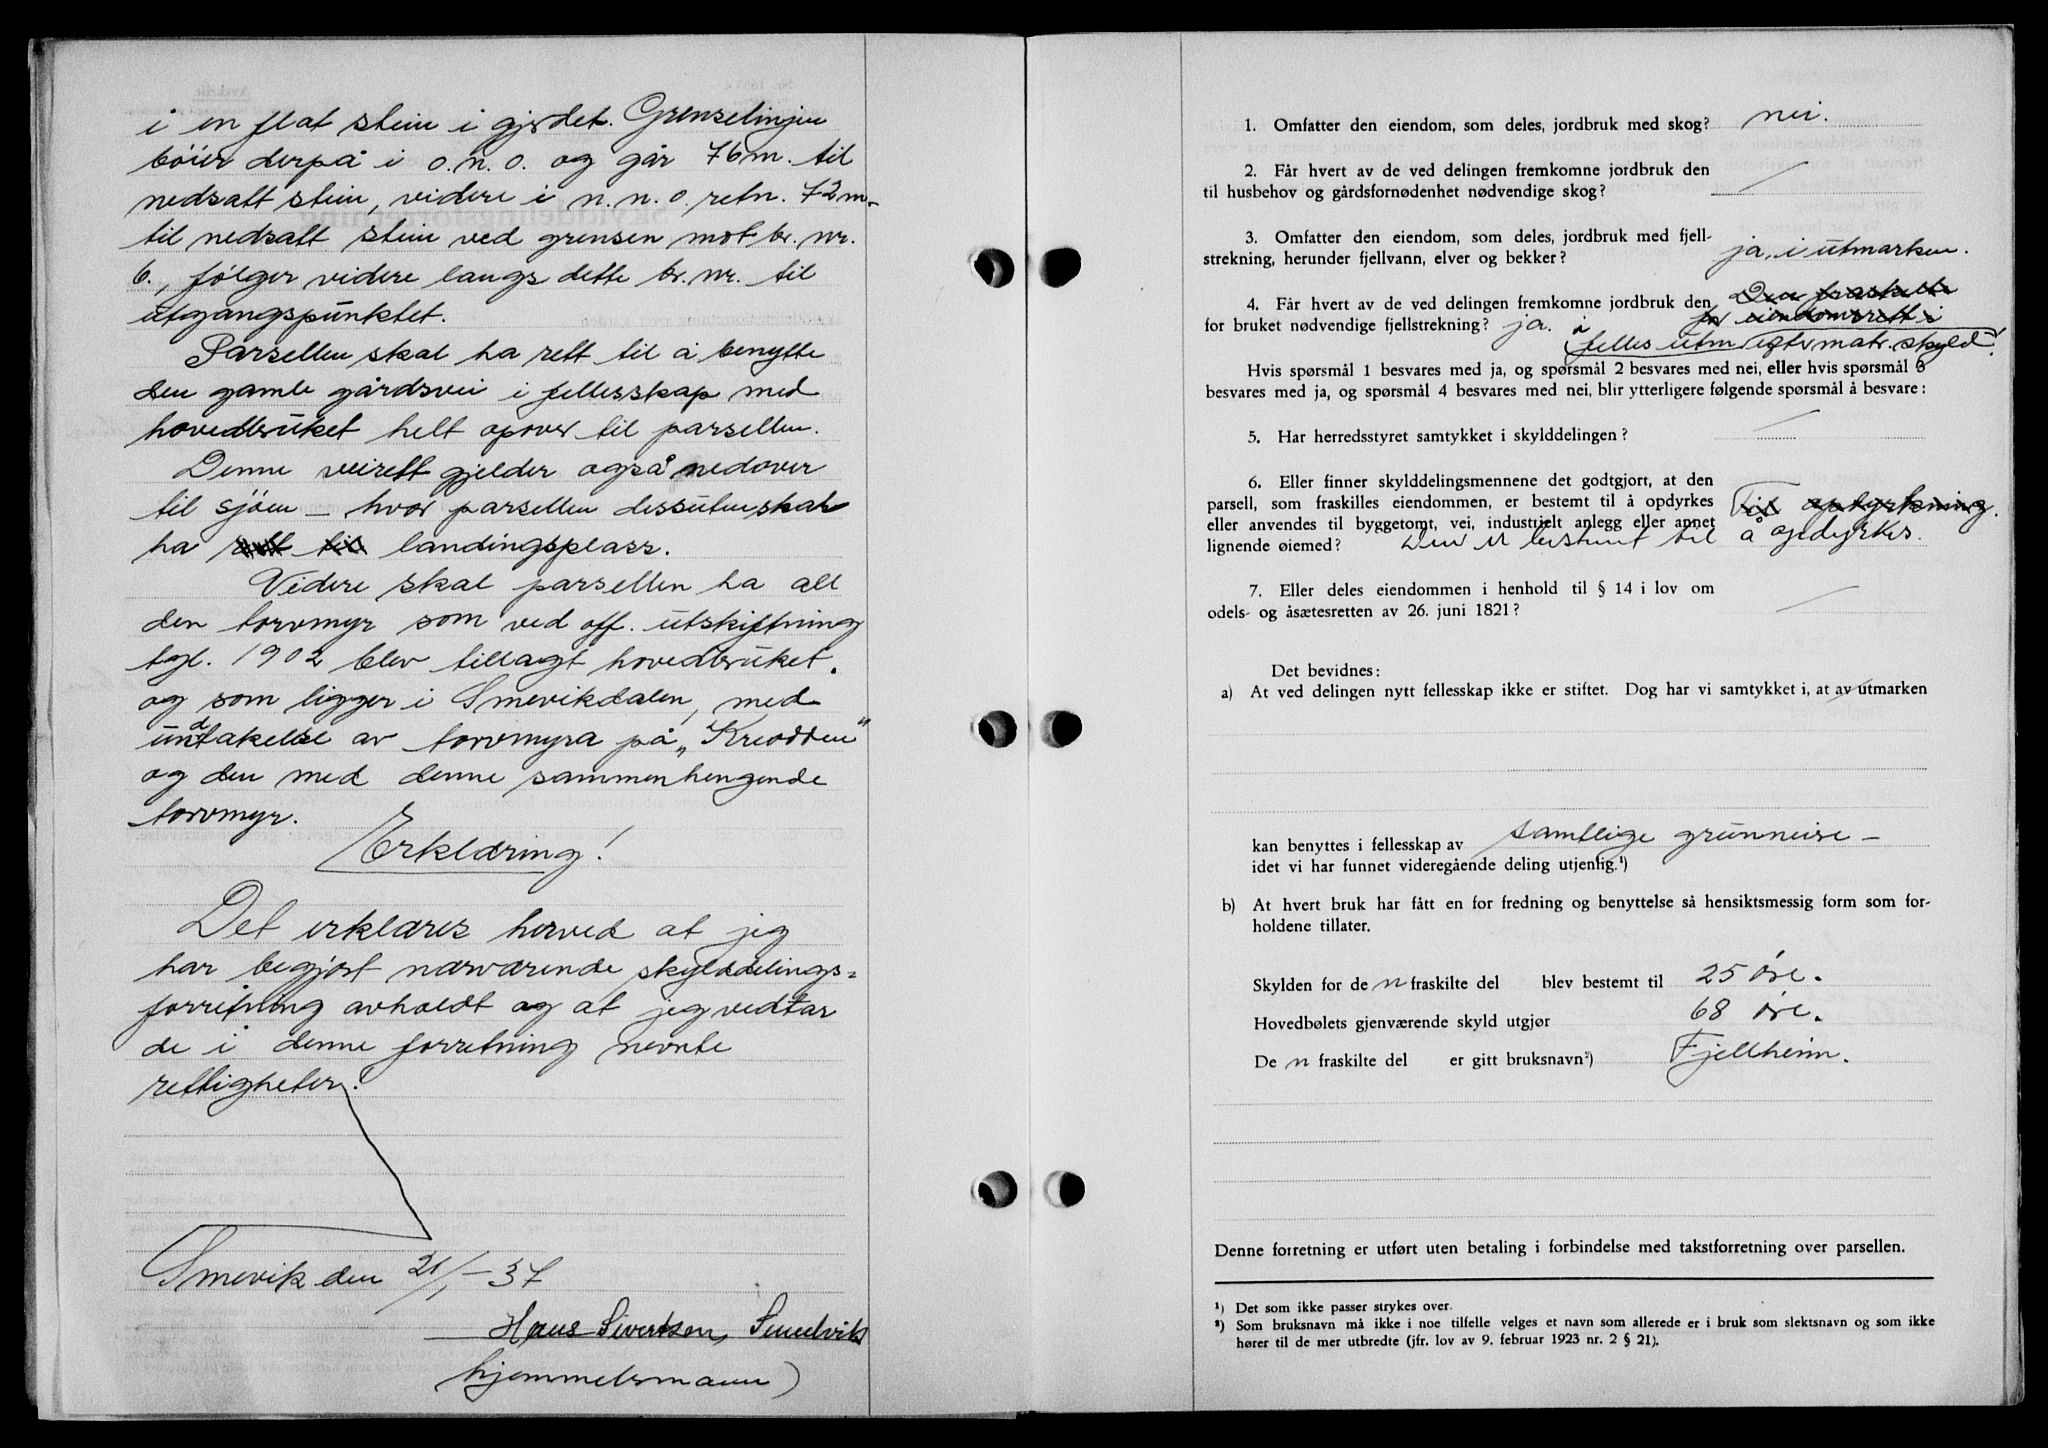 i en flat stein i gjerdet. Grenselinjen
böier derpå i o.n.o. og går 76 m. til
nedsatt stein, videre i n.n.o. retn. 72 m.
til nedsatt stein ved grensen mot br. nr.
6., følger videre langs dette br. nr. til
utgangspunktet.
Parsellen skal ha rett til å benytte
den gamle gårdsvei i fellesskap med
hovedbruket helt opover til parsellen.
Denne veirett gjelder også nedover
til sjöen – hvor parsellen dessuten skal
ha rett til landingsplass.
Videre skal parsellen ha all
den torvmyr som ved off. utskiftning
tgl. 1902 blev tillagt hovedbruket.
og som ligger i Smevikdalen, med
undtakelse av torvmyra på „Kreodden"
og den med denne sammenhengende
torvmyr.
Erklæring!
Det erklæres herved at jeg
har begjært nærværende skylddelings=
forretning avholdt og at jeg vedtar
de i denne forretning nevnte
rettigheter.
Smevik den 21/1 – 37
Hans Sivertsen, Smedvik
hjemmelsmann)
1. Omfatter den eiendom, som deles, jordbruk med skog? nei.
2. Får hvert av de ved delingen fremkomne jordbruk den
til husbehov og gårdsfornødenhet nødvendige skog?
3. Omfatter den eiendom, som deles, jordbruk med fjell-
strekning, herunder fjellvann, elver og bekker? ja, i utmarken.
4. Får hvert av de ved delingen fremkomne jordbruk den Den fraskilte
for bruket nødvendige fjellstrekning? ja. får eiendomsrett i
felles utm efter matr. skyld!
Hvis spørsmål 1 besvares med ja, og spørsmål 2 besvares med nei, eller hvis spørsmål 3
besvares med ja, og spørsmål 4 besvares med nei, blir ytterligere følgende spørsmål å besvare:
5. Har herredsstyret samtykket i skylddelingen?
6. Eller finner skylddelingsmennene det godtgjort, at den
parsell, som fraskilles eiendommen, er bestemt til å opdyrkes Til opdyrkning.
eller anvendes til byggetomt, vei, industrielt anlegg eller annet
lignende øiemed? Den er bestemt til å opdyrkes.
7. Eller deles eiendommen i henhold til § 14 i lov om
odels- og åsætesretten av 26. juni 1821?
Det bevidnes:
a) At ved delingen nytt fellesskap ikke er stiftet. Dog har vi samtykket i, at av utmarken
kan benyttes i fellesskap av samtlige grunneiere –
idet vi har funnet videregående deling utjenlig.¹)
b) At hvert bruk har fått en for fredning og benyttelse så hensiktsmessig form som for-
holdene tillater.
Skylden for den fraskilte del blev bestemt til 25 øre.
Hovedbølets gjenværende skyld utgjør 68 øre.
Den fraskilte del er gitt bruksnavn²) Fjellheim.
Denne forretning er utført uten betaling i forbindelse med takstforretning over parsellen.
¹) Det som ikke passer strykes over.
²) Som bruksnavn må ikke i noe tilfelle velges et navn som allerede er i bruk som slektsnavn og som ikke
hører til de mer utbredte (jfr. lov av 9. februar 1923 nr. 2 § 21).